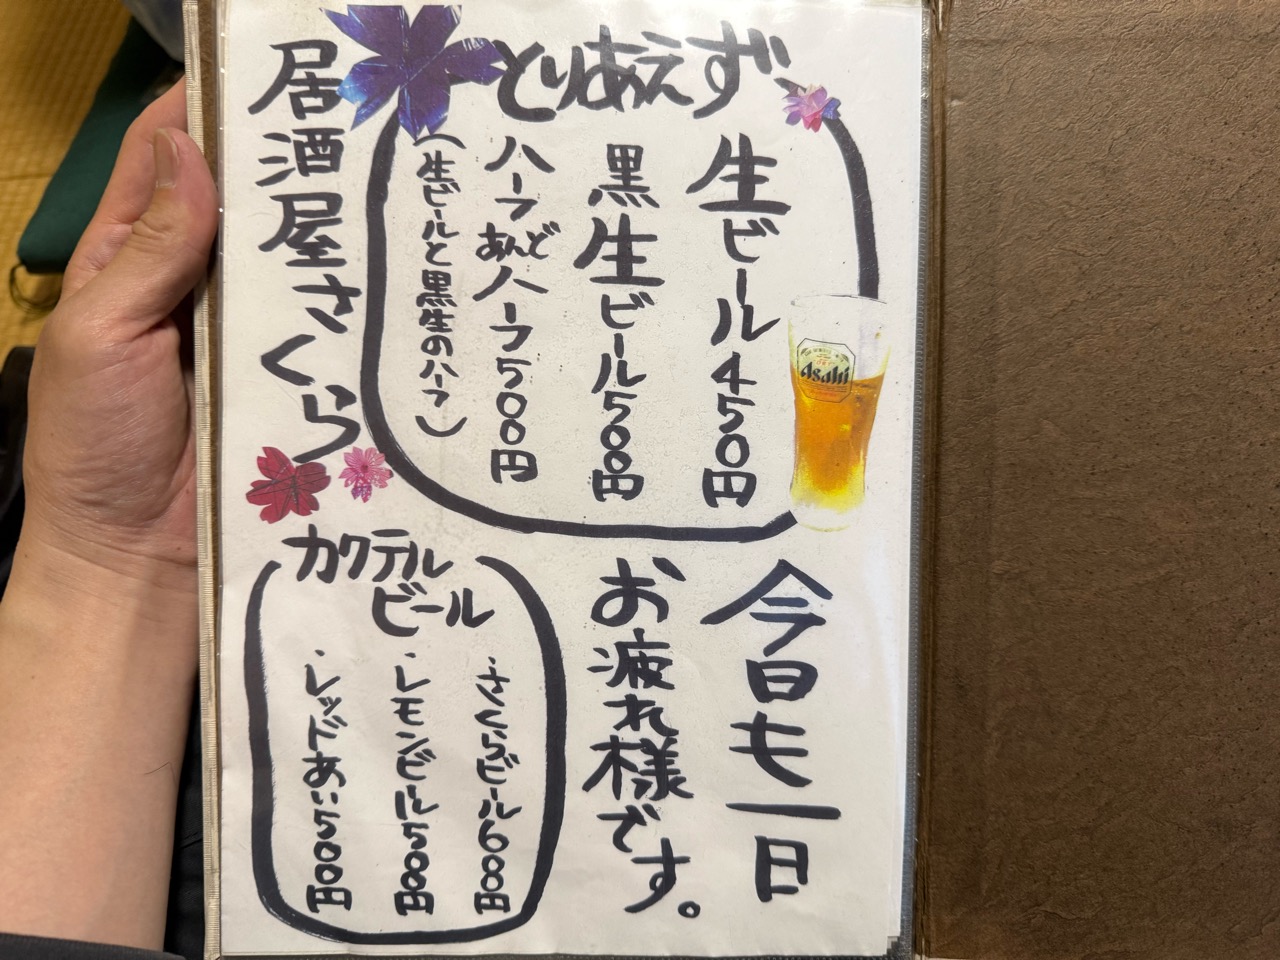 とりあえず、
生ビール450円
黒生ビール500円
ハーフあんどハーフ500円
(生ビールと黒生のハーフ)
居酒屋さくら
Asahi
今日も一日
お疲れ様です。
カクテル
ビール
・さくらビール600円
・レモンビール500円
・レッドあい500円